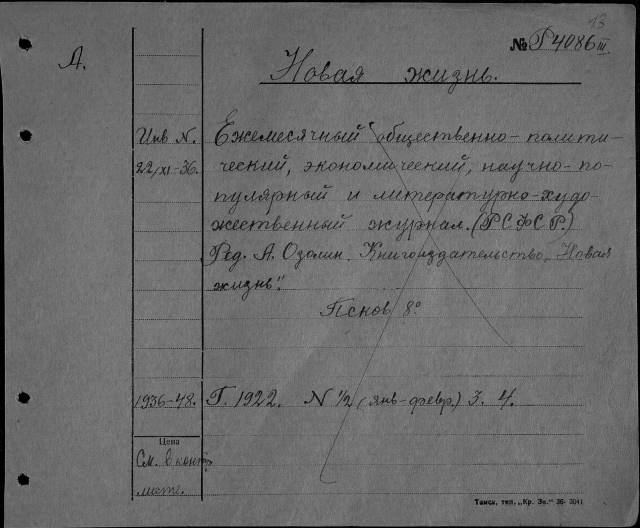 13
№ Р4086 III.
А.
Новая жизнь.
Инв N. Ежемесячный общественно-полити-
22/XI-36. ческий, экономический, научно-по-
пулярный и литературно-худо-
жественный журнал. (РСФСР.)
Ред. А. Озолин. Книгоиздательство „Новая
жизнь".
Псков 8°
1936-48. Г. 1922. N 1/2 (янв-февр.) 3. 4.
Цена
См. в конт
листе.
Тамск. тип. „Кр. Зн." 36- 3041